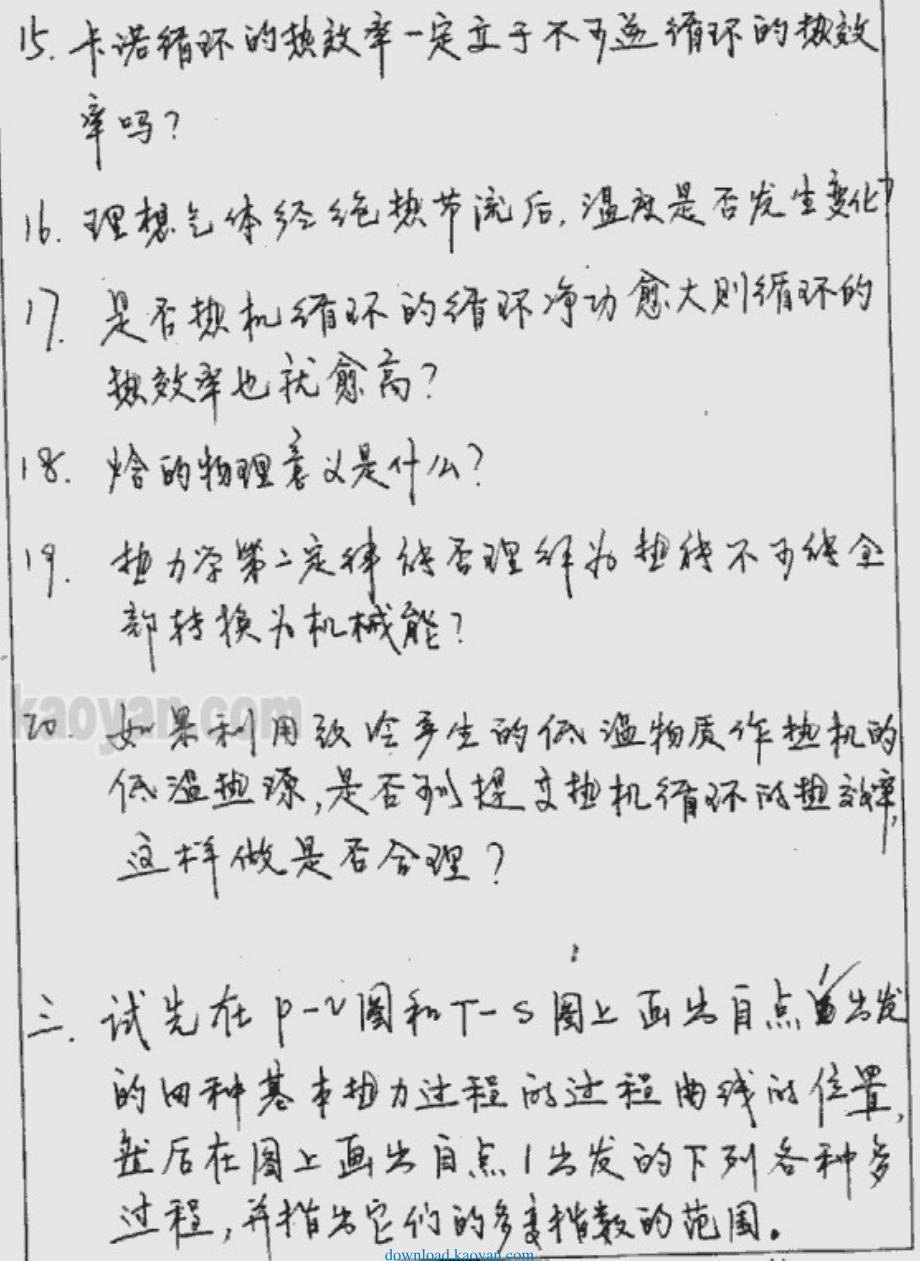 15. 卡诺循环的热效率一定高于不可逆循环的热效
率吗?
16. 理想气体经绝热节流后,温度是否发生变化?
17. 是否热机循环的循环净功愈大则循环的
热效率也就愈高?
18. 焓的物理意义是什么?
19. 热力学第二定律能否理解为热能不可能全
部转换为机械能?
kaoyan.com
20. 如果利用致冷产生的低温物质作热机的
低温热源,是否可提高热机循环的热效率,
这样做是否合理?
三. 试先在 p-v 图和 T-s 图上画出自点 1 出发
的四种基本热力过程的过程曲线的位置,
然后在图上画出自点 1 出发的下列各种多
过程,并指出它们的多变指数的范围。
download.kaoyan.com